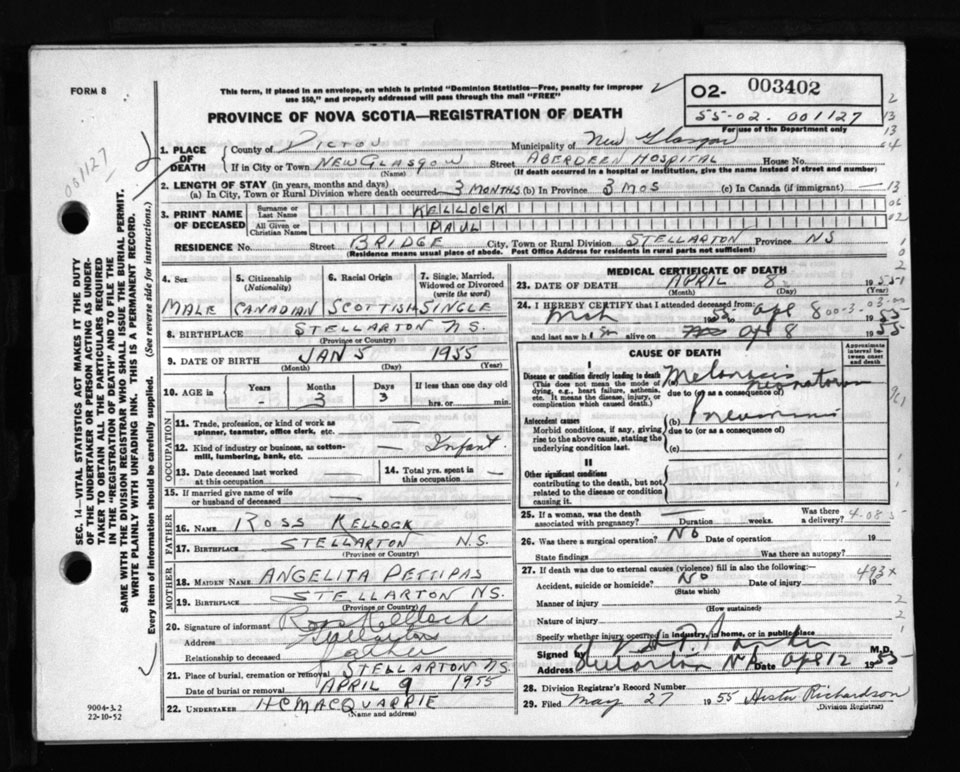 FORM 8
This form, if placed in an envelope, on which is printed "Dominion Statistics—Free, penalty for improper
use $50," and properly addressed will pass through the mail "FREE"
02- 003402
55-02. 001127
For use of the Department only
PROVINCE OF NOVA SCOTIA—REGISTRATION OF DEATH
001127
1. PLACE OF DEATH
County of PICTOU Municipality of New Glasgow
If in City or Town NEW GLASGOW Street ABERDEEN HOSPITAL House No.
(Name) (If death occurred in a hospital or institution, give the name instead of street and number)
2. LENGTH OF STAY (in years, months and days)
(a) In City, Town or Rural Division where death occurred 3 MONTHS (b) In Province 3 MOS (c) In Canada (if immigrant) —
3. PRINT NAME OF DECEASED
Surname or Last Name KELLOCK
All Given or Christian Names PAUL
RESIDENCE No. Street BRIDGE City, Town or Rural Division STELLARTON Province NS
(Residence means usual place of abode. Post Office Address for residents in rural parts not sufficient)
4. Sex 5. Citizenship (Nationality) 6. Racial Origin 7. Single, Married, Widowed or Divorced (write the word)
MALE CANADIAN SCOTTISH SINGLE
8. BIRTHPLACE STELLARTON N.S.
(Province or Country)
9. DATE OF BIRTH JAN 5 1955
(Month) (Day) (Year)
10. AGE in Years Months Days If less than one day old
- 3 3 hrs. or min.
OCCUPATION
11. Trade, profession, or kind of work as spinner, teamster, office clerk, etc. —
12. Kind of industry or business, as cotton-mill, lumbering, bank, etc. — Infant
13. Date deceased last worked at this occupation — 14. Total yrs. spent in this occupation —
15. If married give name of wife or husband of deceased —
FATHER
16. NAME ROSS KELLOCK
17. BIRTHPLACE STELLARTON N.S.
(Province or Country)
MOTHER
18. MAIDEN NAME ANGELITA PETTIPAS
19. BIRTHPLACE STELLARTON NS.
(Province or Country)
20. Signature of informant Ross Kellock
Address Stellarton
Relationship to deceased Father
21. Place of burial, cremation or removal STELLARTON N.S.
Date of burial or removal APRIL 9 1955
22. UNDERTAKER H C MACQUARRIE
(Name and address)
9004-3.2
22-10-52
MEDICAL CERTIFICATE OF DEATH
23. DATE OF DEATH APRIL 8 1955
(Month) (Day) (Year)
24. I HEREBY CERTIFY that I attended deceased from
Mch 1955 to Apl 8 1955
and last saw him alive on Apl 8 1955
CAUSE OF DEATH
Approximate interval between onset and death
I
Disease or condition directly leading to death
(This does not mean the mode of dying, e.g., heart failure, asthenia, etc. It means the disease, injury, or complication which caused death.)
(a) neonatorum
due to (or as a consequence of)
Antecedent causes
Morbid conditions, if any, giving rise to the above cause, stating the underlying condition last.
(b) Pneumonia
due to (or as a consequence of)
(c)
II
Other significant conditions
contributing to the death, but not related to the disease or condition causing it.
25. If a woman, was the death associated with pregnancy? — Duration weeks. Was there a delivery?
26. Was there a surgical operation? No Date of operation 19
State findings Was there an autopsy?
27. If death was due to external causes (violence) fill in also the following:— 493x
Accident, suicide or homicide? No Date of injury 19
(State which)
Manner of injury
(How sustained)
Nature of injury
Specify whether injury occurred in industry, in home, or in public place
Signed by M.D.
Address Stellarton N.S. Date Apl 12 1955
28. Division Registrar's Record Number
29. Filed May 27 1955 Hester Richardson
(Division Registrar)
SEC. 14—VITAL STATISTICS ACT MAKES IT THE DUTY
OF THE UNDERTAKER OR PERSON ACTING AS UNDER-
TAKER TO OBTAIN ALL THE PARTICULARS REQUIRED
IN THE "REGISTRATION OF DEATH" AND TO FILE THE
SAME WITH THE DIVISION REGISTRAR WHO SHALL ISSUE THE BURIAL PERMIT.
WRITE PLAINLY WITH UNFADING INK. THIS IS A PERMANENT RECORD.
Every item of information should be carefully supplied. (See reverse side for instructions.)